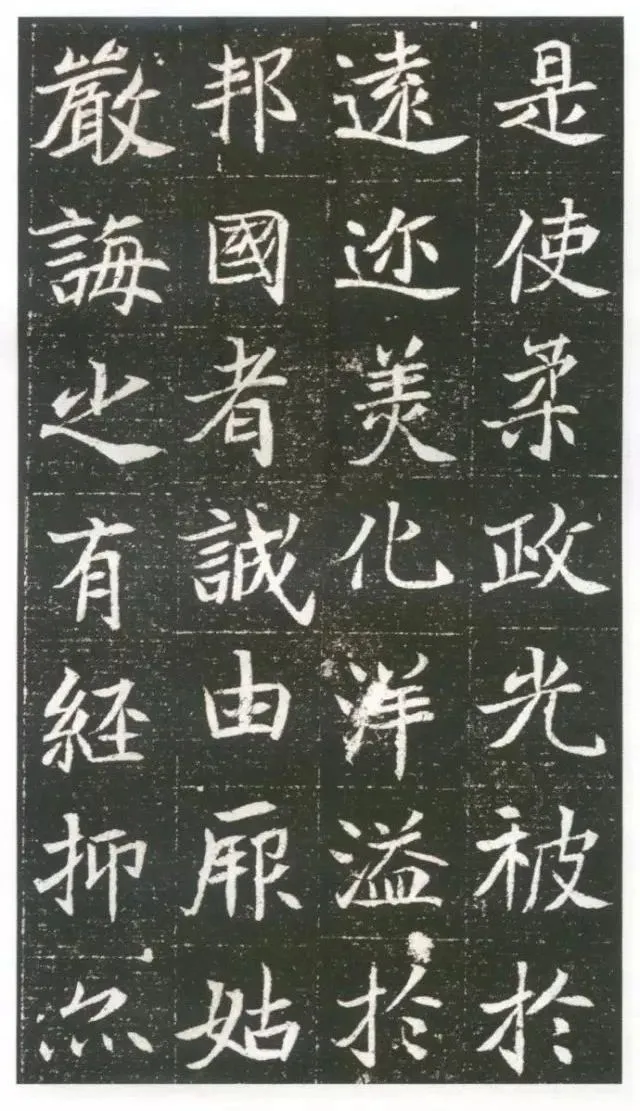 是使柔政光被於
遠迩美化洋溢於
邦國者誠由厥姑
嚴誨之有経抑亦